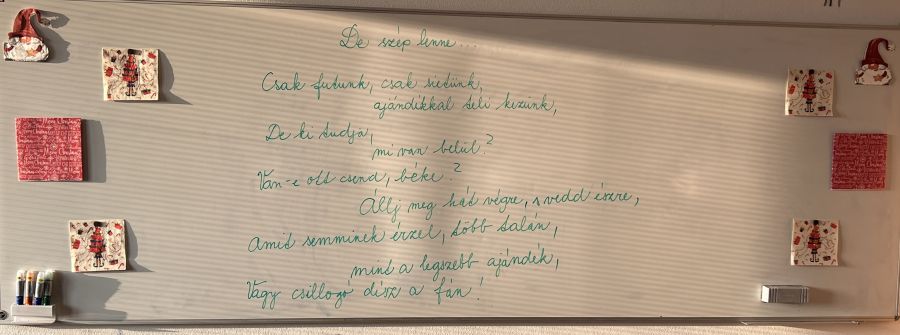 De szép lenne...
Csak futunk, csak sietünk,
ajándékkal teli kezünk,
De ki tudja,
mi van belül?
Van-e ott csend, béke?
Állj meg hát végre, s vedd észre,
Amit semminek érzel, több talán,
mint a legszebb ajándék,
Vagy csillogó dísz a fán!